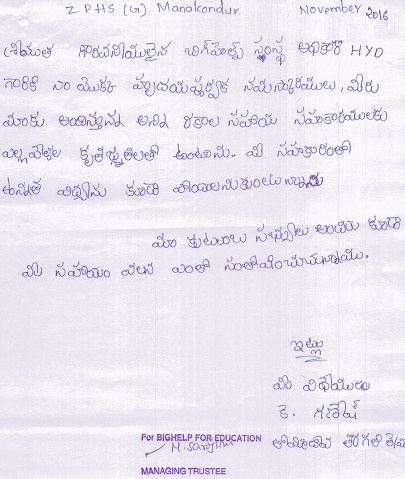 Z P H S (G) Manakondur. November 2016
శ్రీయుత గౌరవనీయులైన బిగ్‌హెల్ప్ సంస్థ అధికారి HYD
గారికి నా యొక్క హృదయపూర్వక నమస్కారములు, మీరు
మాకు అందిస్తున్న అన్ని రకాల సహాయ సహకారములకు
ఎల్లవేళలా కృతజ్ఞతలతో ఉంటాము. మీ సహకారంతో
ఉన్నత విద్యను కూడా పొందాలనుకుంటున్నాను
మా కుటుంబ సభ్యులు అందరు కూడా
మీ సహాయం వలన ఎంతో సంతోషించుచున్నాము.
ఇట్లు
మీ విధేయుడు
కె. గణేష్
For BIGHELP FOR EDUCATION తరగతి
MANAGING TRUSTEE